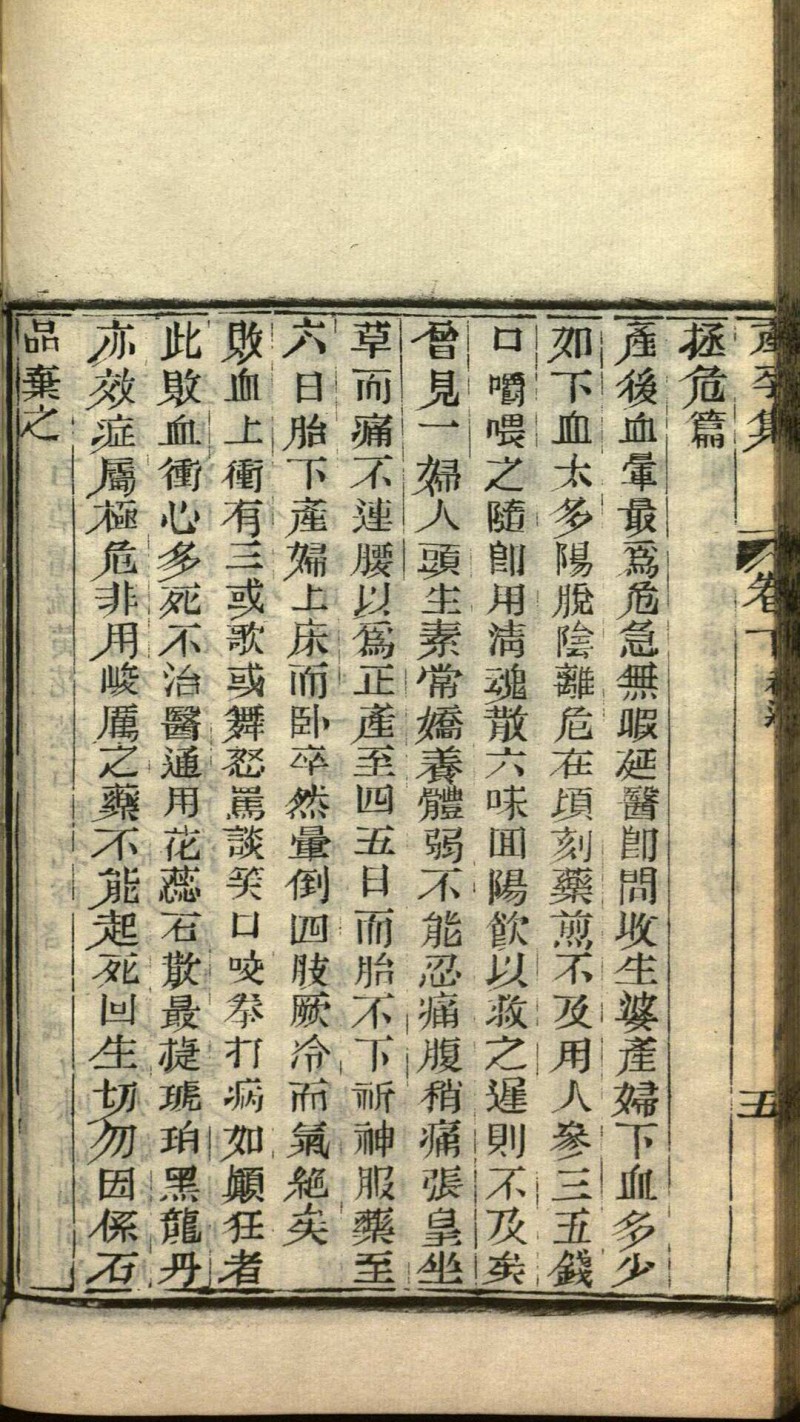 產孕集 卷下 五
拯危篇
產後血暈最爲危急無暇延醫卽問收生婆產婦下血多少
如下血太多陽脫陰離危在頃刻藥煎不及用人參三五錢
口嚼喂之隨卽用淸魂散六味回陽飮以救之遲則不及矣
曾見一婦人頭生素常嬌養體弱不能忍痛腹稍痛張皇坐
草而痛不連腰以爲正產至四五日而胎不下祈神服藥至
六日胎下產婦上床而卧卒然暈倒四肢厥冷而氣絕矣
敗血上衝有三或歌或舞怒罵談笑口咬拳打病如顚狂者
此敗血衝心多死不治醫通用花蕊石散最捷琥珀黑龍丹
亦效症屬極危非用峻厲之藥不能起死回生切勿因係石
品棄之